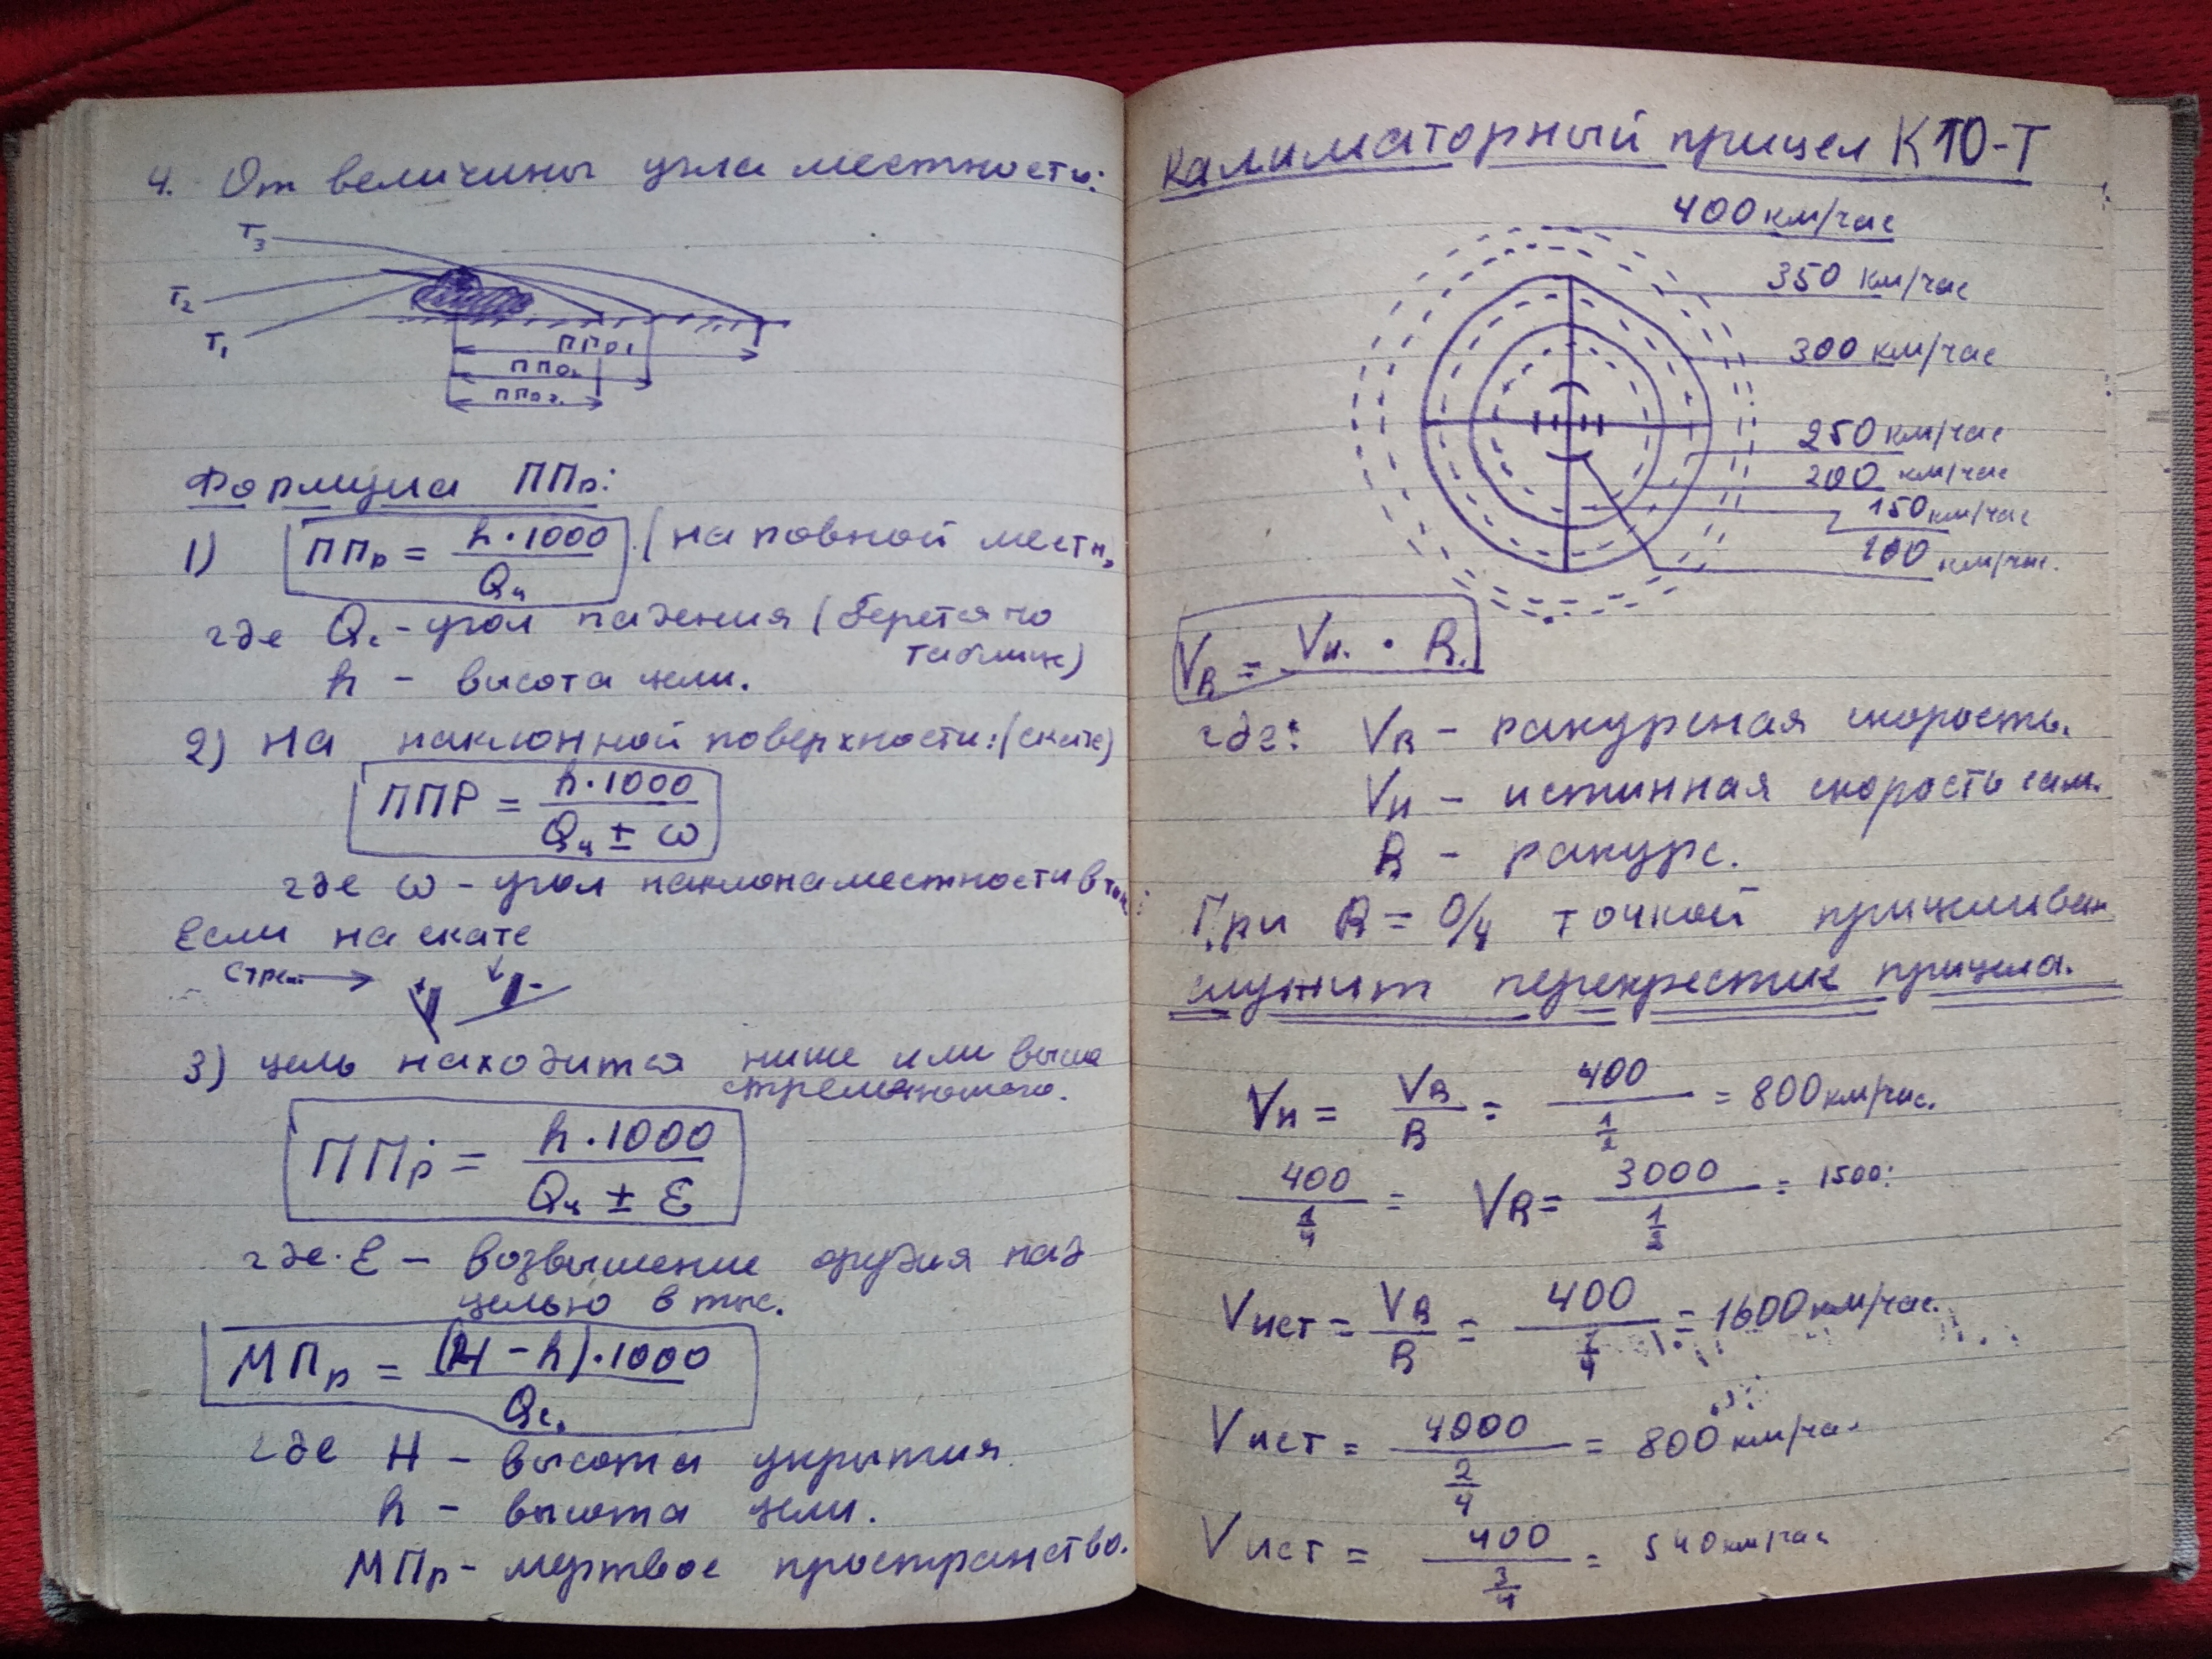 4. От величины угла местности:
T3
T2
T1
ППр1
ППр2
ППр3
Формула ППр:
1) ППр = h·1000 / Qч (на ровной местн,
где Qс - угол падения (берется по
таблице)
h - высота цели.
2) На наклонной поверхности: (скате)
ППР = h·1000 / Qч ± ω
где ω - угол наклона местности в тыс.
Если на скате
Стрел. + -
3) цель находится ниже или выше
стреляющего.
ППр = h·1000 / Qч ± Ɛ
где. Ɛ - возвышение орудия над
целью в тыс.
МПр = (H - h)·1000 / Qс.
где H - высота укрытия
h - высота цели.
МПр - мертвое пространство.
Калиматорный прицел К10-Т
400 км/час
350 км/час
300 км/час
250 км/час
200 км/час
150 км/час
100 км/час.
VR = Vи. · R.
где: VR - ракурсная скорость.
Vи - истинная скорость сам.
R - ракурс.
При R = 0/4 точкой прицеливан
служит перекрестие прицела.
Vи = VR / R = 400 / 1/2 = 800 км/час.
400 / 1/4 = VR = 3000 / 1/2 = 1500.
Vист = VR / R = 400 / 1/4 = 1600 км/час.
Vист = 4000 / 2/4 = 800 км/час
Vист = 400 / 3/4 = 540 км/час